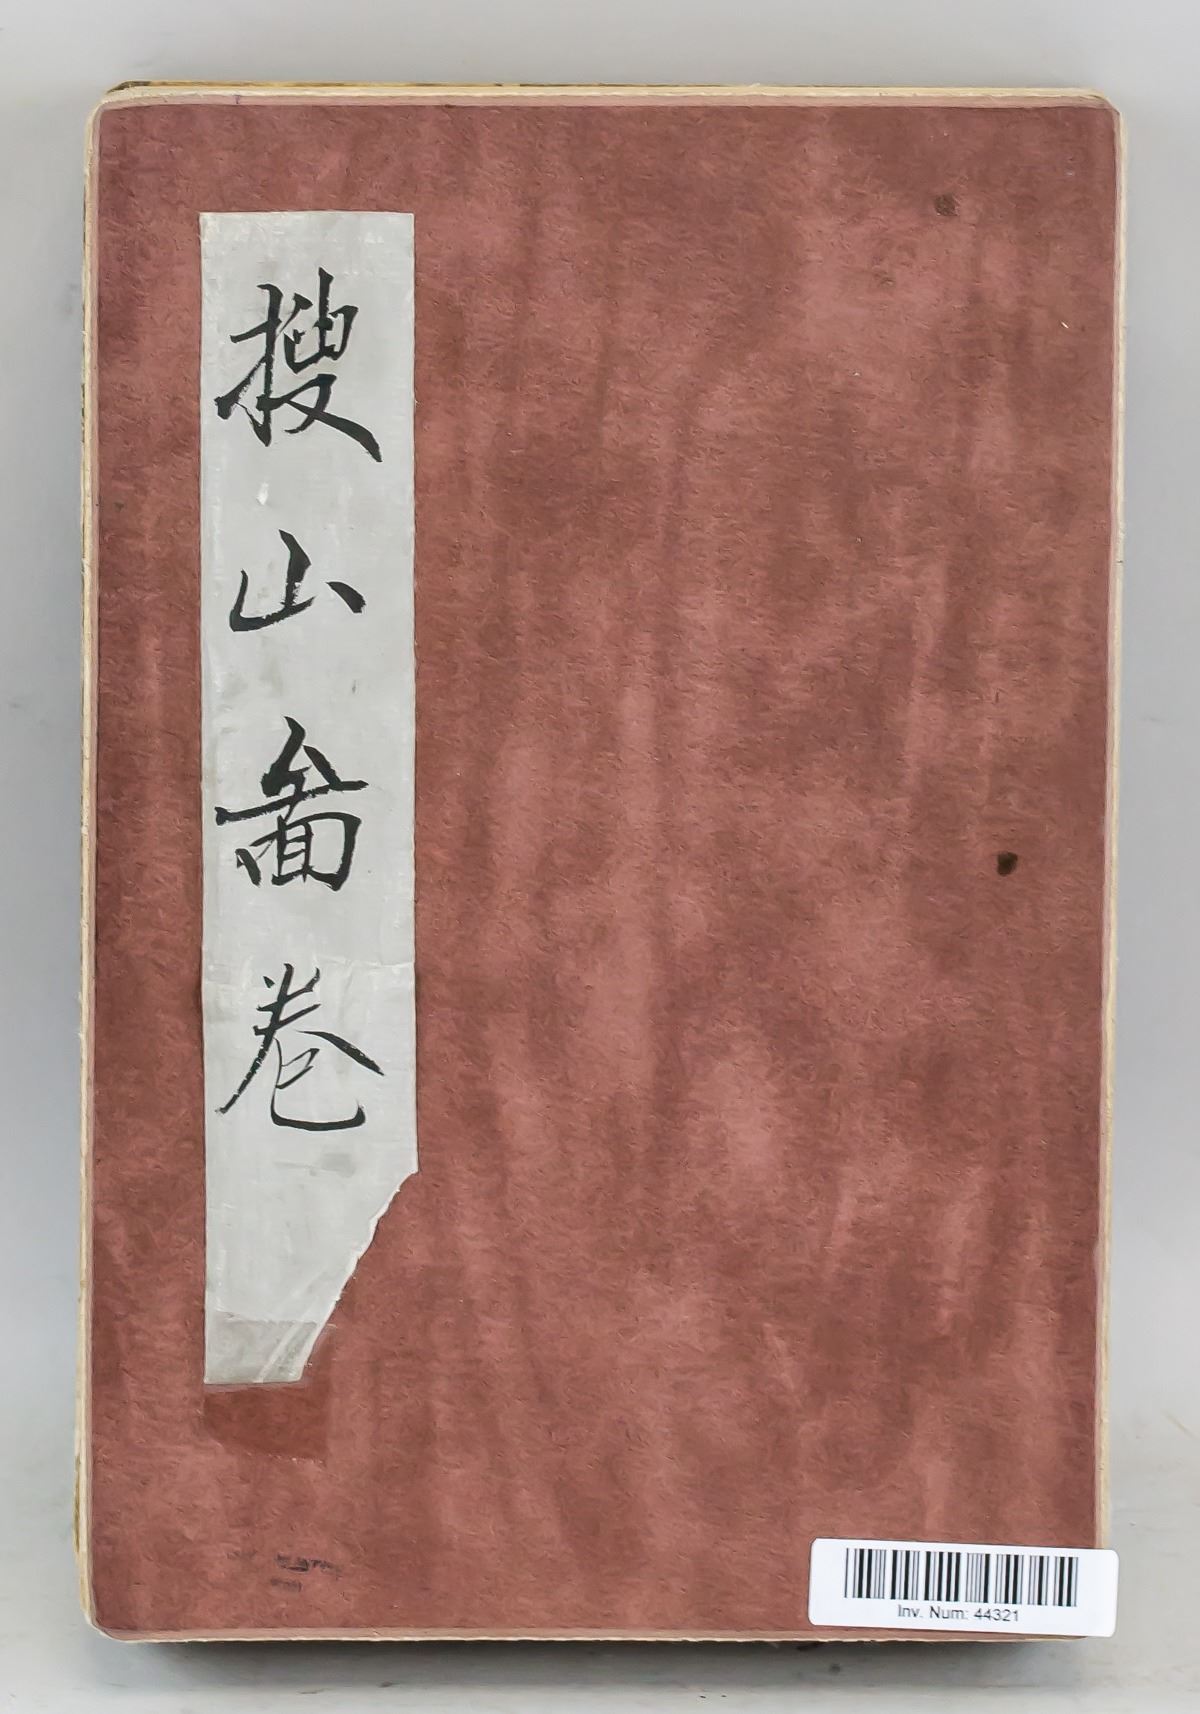 搜山啚卷
Inv. Num: 44321